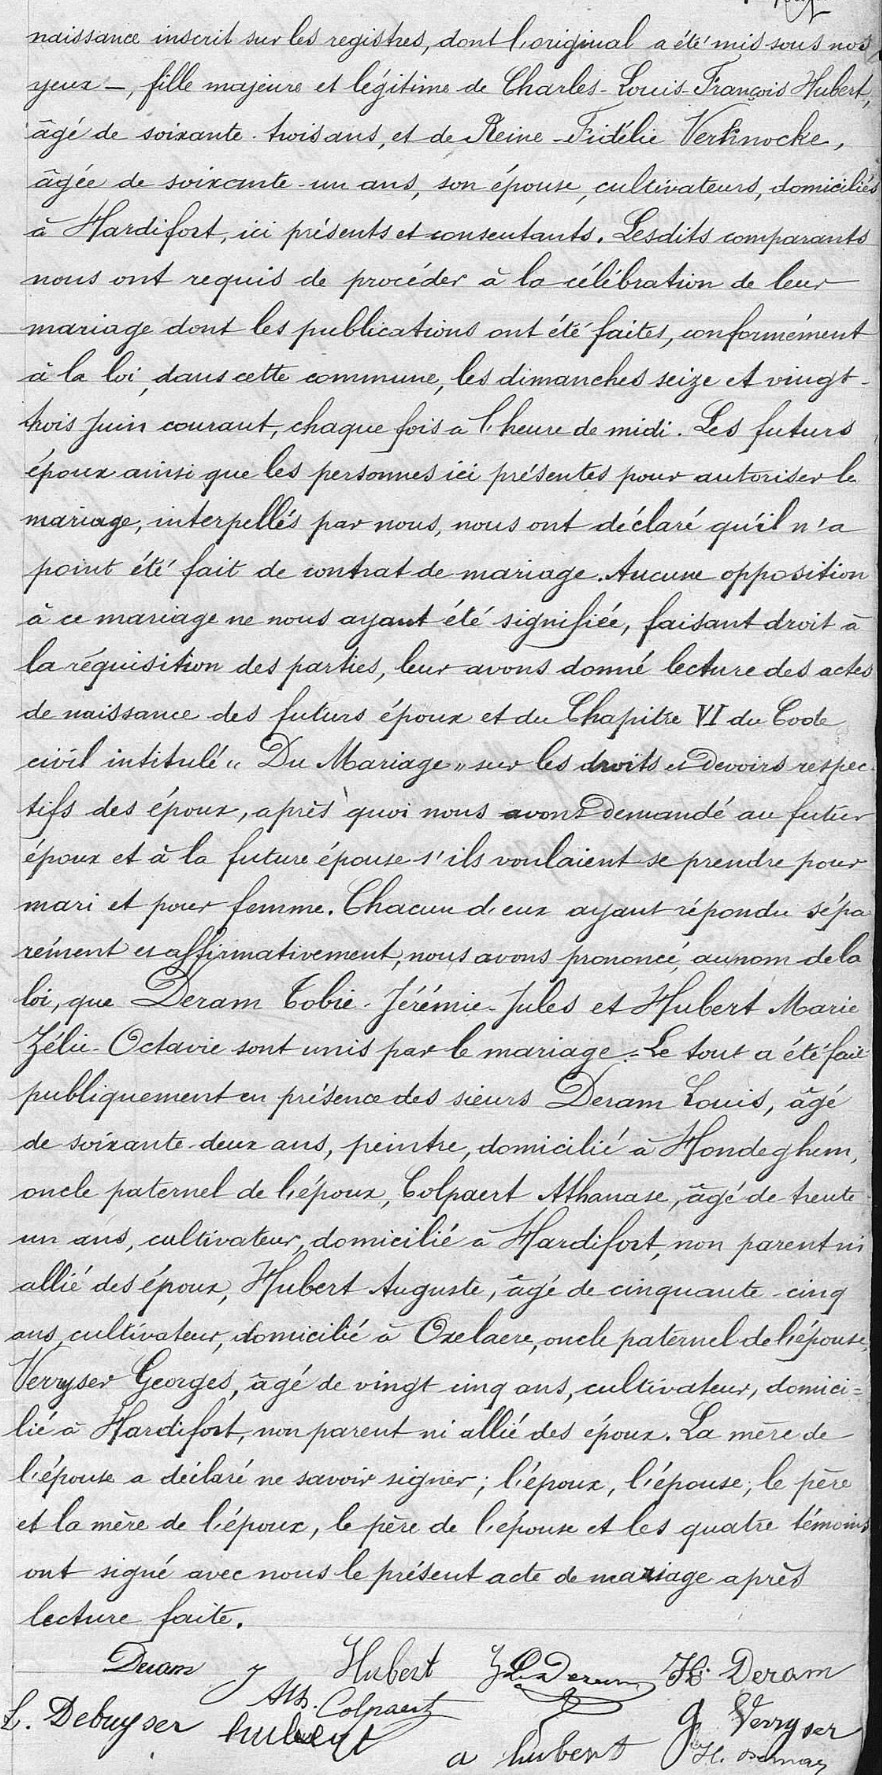 naissance inscrit sur les registres, dont l'original a été mis sous nos
yeux —, fille majeure et légitime de Charles-Louis-François Hubert,
âgé de soixante-trois ans, et de Reine-Fidélie Verhnocke,
âgée de soixante-un ans, son épouse, cultivateurs, domiciliés
à Hardifort, ici présents et consentants. Lesdits comparants
nous ont requis de procéder à la célébration de leur
mariage dont les publications ont été faites, conformément
à la loi, dans cette commune, les dimanches seize et vingt-
trois Juin courant, chaque fois à l'heure de midi. Les futurs
époux ainsi que les personnes ici présentes pour autoriser le
mariage, interpellés par nous, nous ont déclaré qu'il n'a
point été fait de contrat de mariage. Aucune opposition
à ce mariage ne nous ayant été signifiée, faisant droit à
la réquisition des parties, leur avons donné lecture des actes
de naissance des futurs époux et du Chapitre VI du Code
civil intitulé "Du Mariage" sur les droits et Devoirs respec-
tifs des époux, après quoi nous avons Demandé au futur
époux et à la future épouse s'ils voulaient se prendre pour
mari et pour femme. Chacun d'eux ayant répondu sépa
rément et affirmativement, nous avons prononcé, au nom de la
loi, que Deram Tobie-Jérémie-Jules et Hubert Marie
Zélie-Octavie sont unis par le mariage. Le tout a été fait
publiquement en présence des sieurs Deram Louis, âgé
de soixante-deux ans, peintre, domicilié à Hondeghem,
oncle paternel de l'époux, Colpaert Athanase, âgé de trente
un ans, cultivateur, domicilié à Hardifort, non parent ni
allié des époux, Hubert Auguste, âgé de cinquante-cinq
ans, cultivateur, domicilié à Oxelaere, oncle paternel de l'épouse,
Verryser Georges, âgé de vingt cinq ans, cultivateur, domici=
lié à Hardifort, non parent ni allié des époux. La mère de
l'épouse a déclaré ne savoir signer; l'époux, l'épouse, le père
et la mère de l'époux, le père de l'épouse et les quatre témoins
ont signé avec nous le présent acte de mariage après
lecture faite.
Deram J Hubert Z Deram H. Deram
L. Debuyser Ath. Colpaert hubert a hubert G Verryser